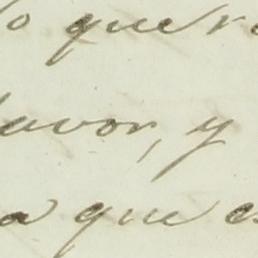 o que r
avor, y
a que es